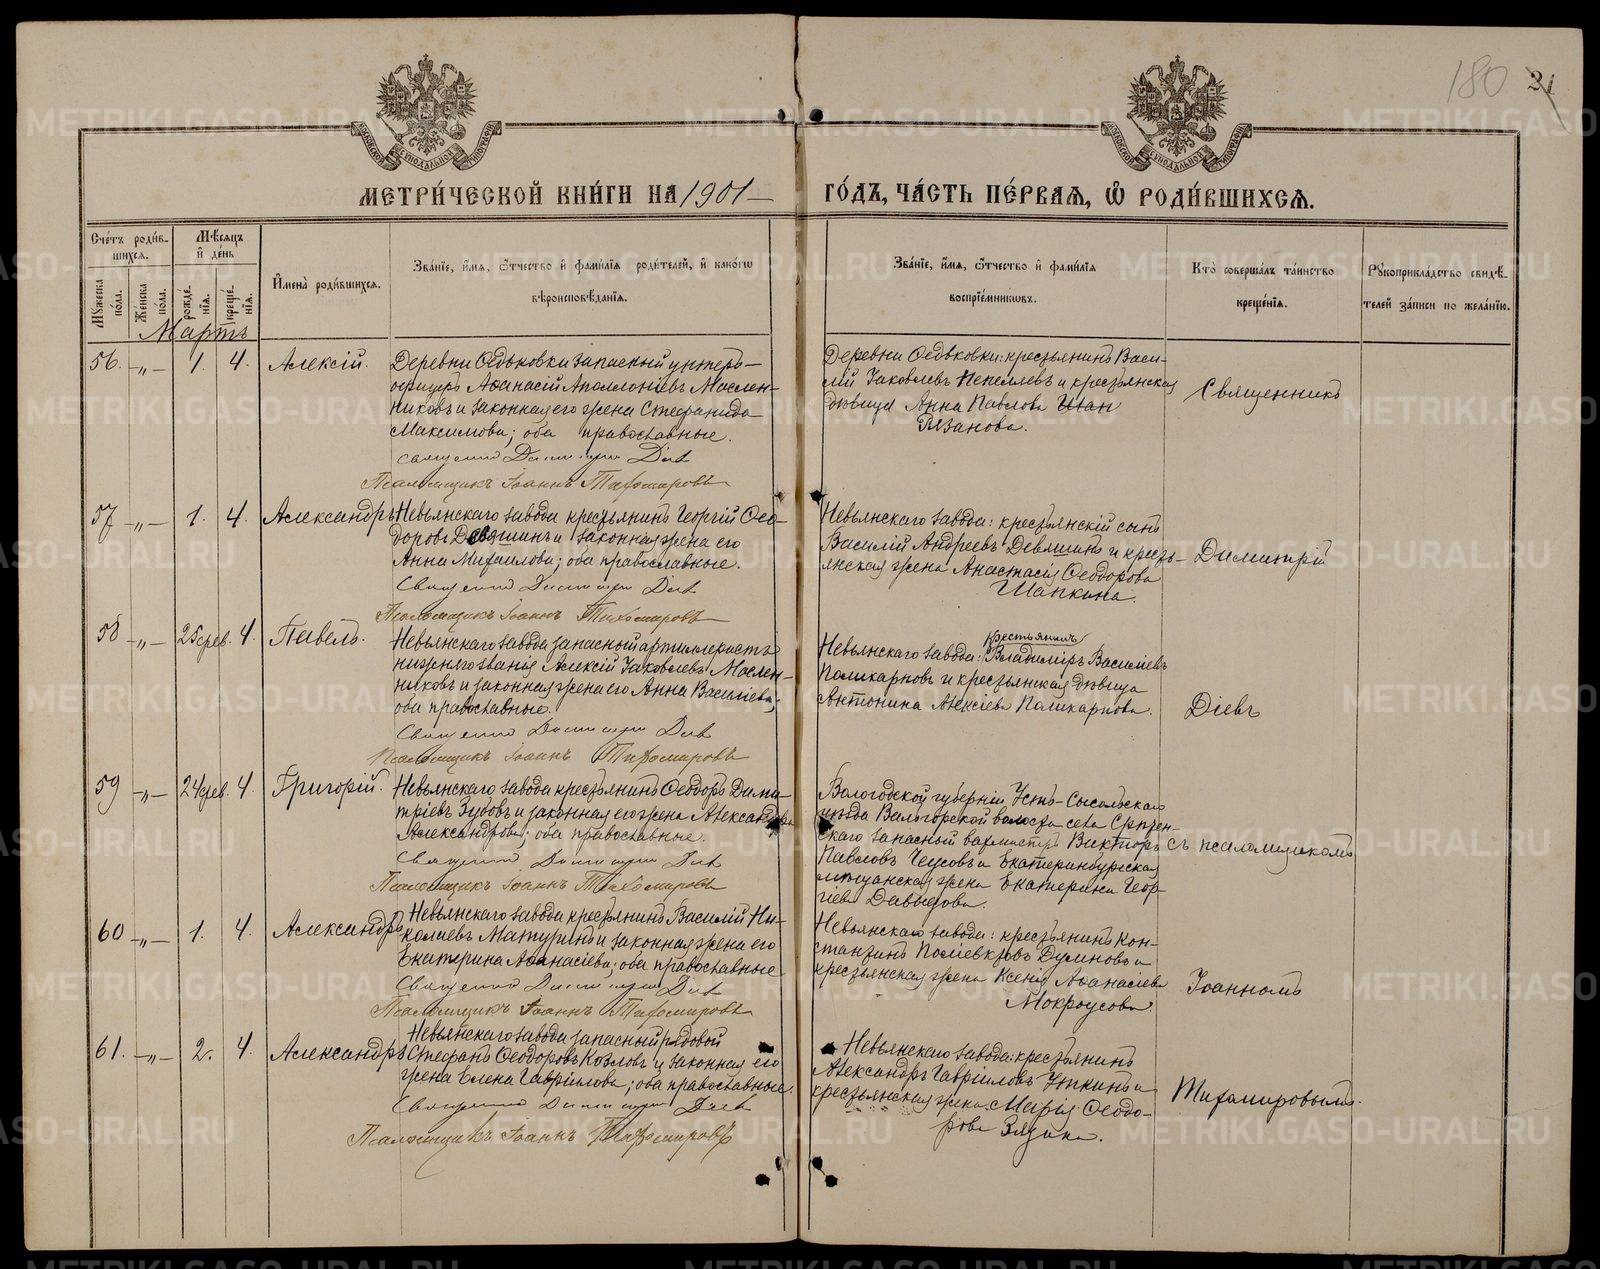 180 21
МЕТРИ́ЧЕСКОЙ КНИ́ГИ НА 1901 ГО́ДЪ, ЧА́СТЬ ПЕ́РВАѦ, Ѡ҆ РОДИ́ВШИХСѦ.
Сче́тъ роди́в-
шихся.
Му́жеска по́ла.
Же́нска по́ла.
Мѣ́сяцъ и҆ де́нь
рожде́-
нїѧ.
креще́-
нїѧ.
И҆мена̀ роди́вшихся.
Зва́нїе, и҆́мѧ, ѻ҆́тчество и҆ фами́лїѧ роди́телей, и҆ како́гѡ
вѣроисповѣ́данїѧ.
Зва́нїе, и҆́мѧ, ѻ҆́тчество и҆ фами́лїѧ
воспрїе́мникѡвъ.
Кто̀ соверша́лъ та́инство
креще́нїѧ.
Рꙋкоприкла́дство свидѣ́-
телей за́писи по жела́нїю.
Мартъ
56. —„— 1. 4. Алексій.
Деревни Ѳедьковки запасный унтеръ-
офицеръ Аѳанасій Аполлоніевъ Маслен-
никовъ и законная его жена Стефанида
Максимова; оба православные.
Псаломщикъ Іоаннъ Тихомировъ
Деревни Ѳедьковки: крестьянинъ Васи-
лій Іаковлевъ Пепеляевъ и крестьянская
дѣвица Анна Павлова
Священникъ
57 —„— 1. 4. Александръ
Невьянскаго завода крестьянинъ Георгій Ѳео-
доровъ Девяшинъ и законная жена его
Анна Михаилова; оба православные.
Псаломщикъ Іоаннъ Тихомировъ
Невьянскаго завода: крестьянскій сынъ
Василій Андреевъ Девяшинъ и кресть-
янская жена Анастасія Ѳеодорова
Шапкина.
Димитрій
58 —„— 25 фев. 4. Павелъ.
Невьянскаго завода запасный артиллеристъ
нижняго званія Алексій Іаковлевъ Маслен-
никовъ и законная жена его Анна Василіева;
оба православные.
Псаломщикъ Іоаннъ Тихомировъ
крестьянинъ
Невьянскаго завода: Владиміръ Василіевъ
Поликарповъ и крестьянская дѣвица
Антонина Алексіева Поликарпова.
Діевъ
59 —„— 24 фев. 4. Григорій.
Невьянскаго завода крестьянинъ Ѳеодоръ Дими-
тріевъ Зубовъ и законная его жена Александра
Александрова; оба православные.
Псаломщикъ Іоаннъ Тихомировъ
Вологодской губерніи Усть-Сысольскаго
уѣзда волости села Срѣтен-
скаго запасный вахмистръ Викторъ
Павловъ Чеусовъ и Екатеринбургская
мѣщанская жена Екатерина Геор-
гіева Давыдова.
съ псаломщикомъ
60 —„— 1. 4. Александръ
Невьянскаго завода крестьянинъ Василій Ни-
колаевъ Матуринъ и законная жена его
Екатерина Аѳанасіева; оба православные
Псаломщикъ Іоаннъ Тихомировъ
Невьянскаго завода: крестьянинъ Кон-
стантинъ Поліевктовъ Думновъ и
крестьянская жена Ксенія Аѳанасіева
Мокроусова.
Іоанномъ
61. —„— 2. 4. Александръ
Невьянскаго завода запасный рядовой
Стефанъ Ѳеодоровъ Козловъ и законная его
жена Елена Гавріилова; оба православные.
Псаломщикъ Іоаннъ Тихомировъ
Невьянскаго завода: крестьянинъ
Александръ Гавріиловъ Уткинъ и
крестьянская жена Марія Ѳеодо-
рова
Тихомировымъ.
METRIKI.GASO-URAL.RU